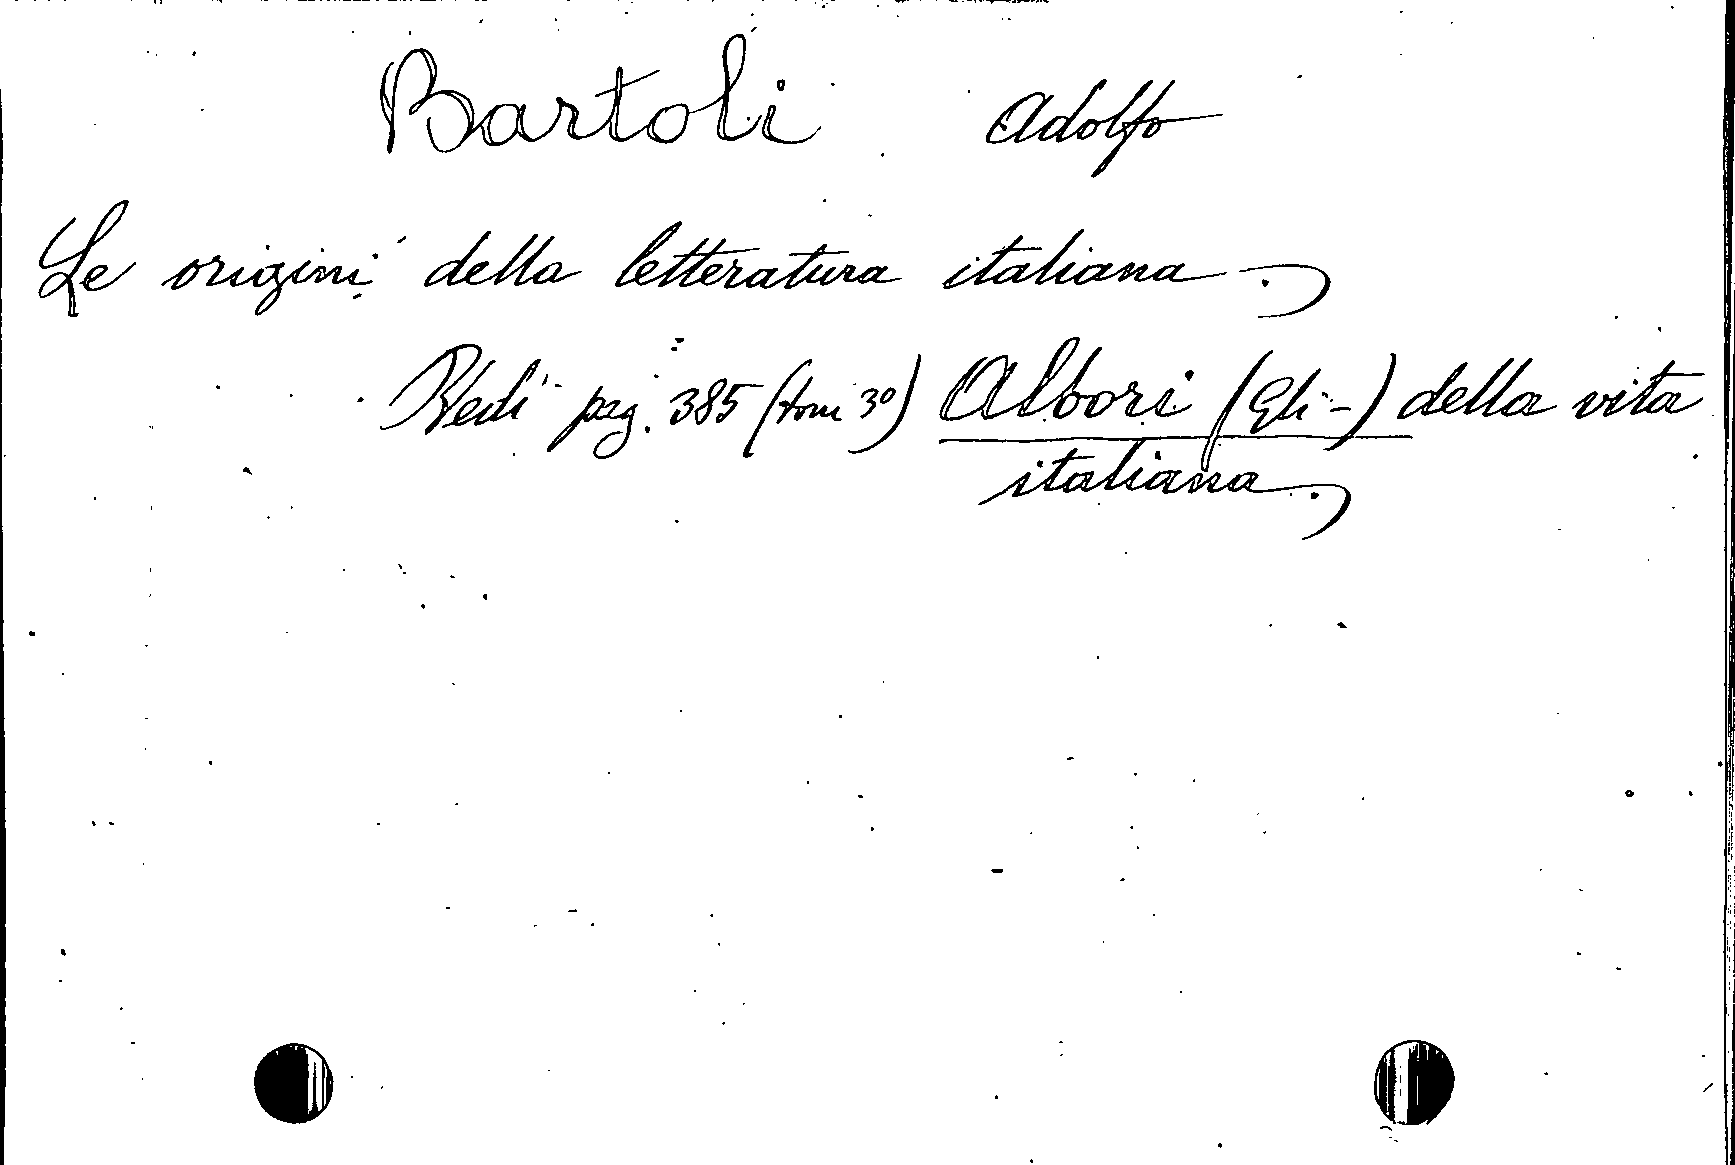 Bartoli Adolfo
Le origini della letteratura italiana.
Vedi pag. 385 (tom 3º) Albori (Gli-) della vita
italiana.